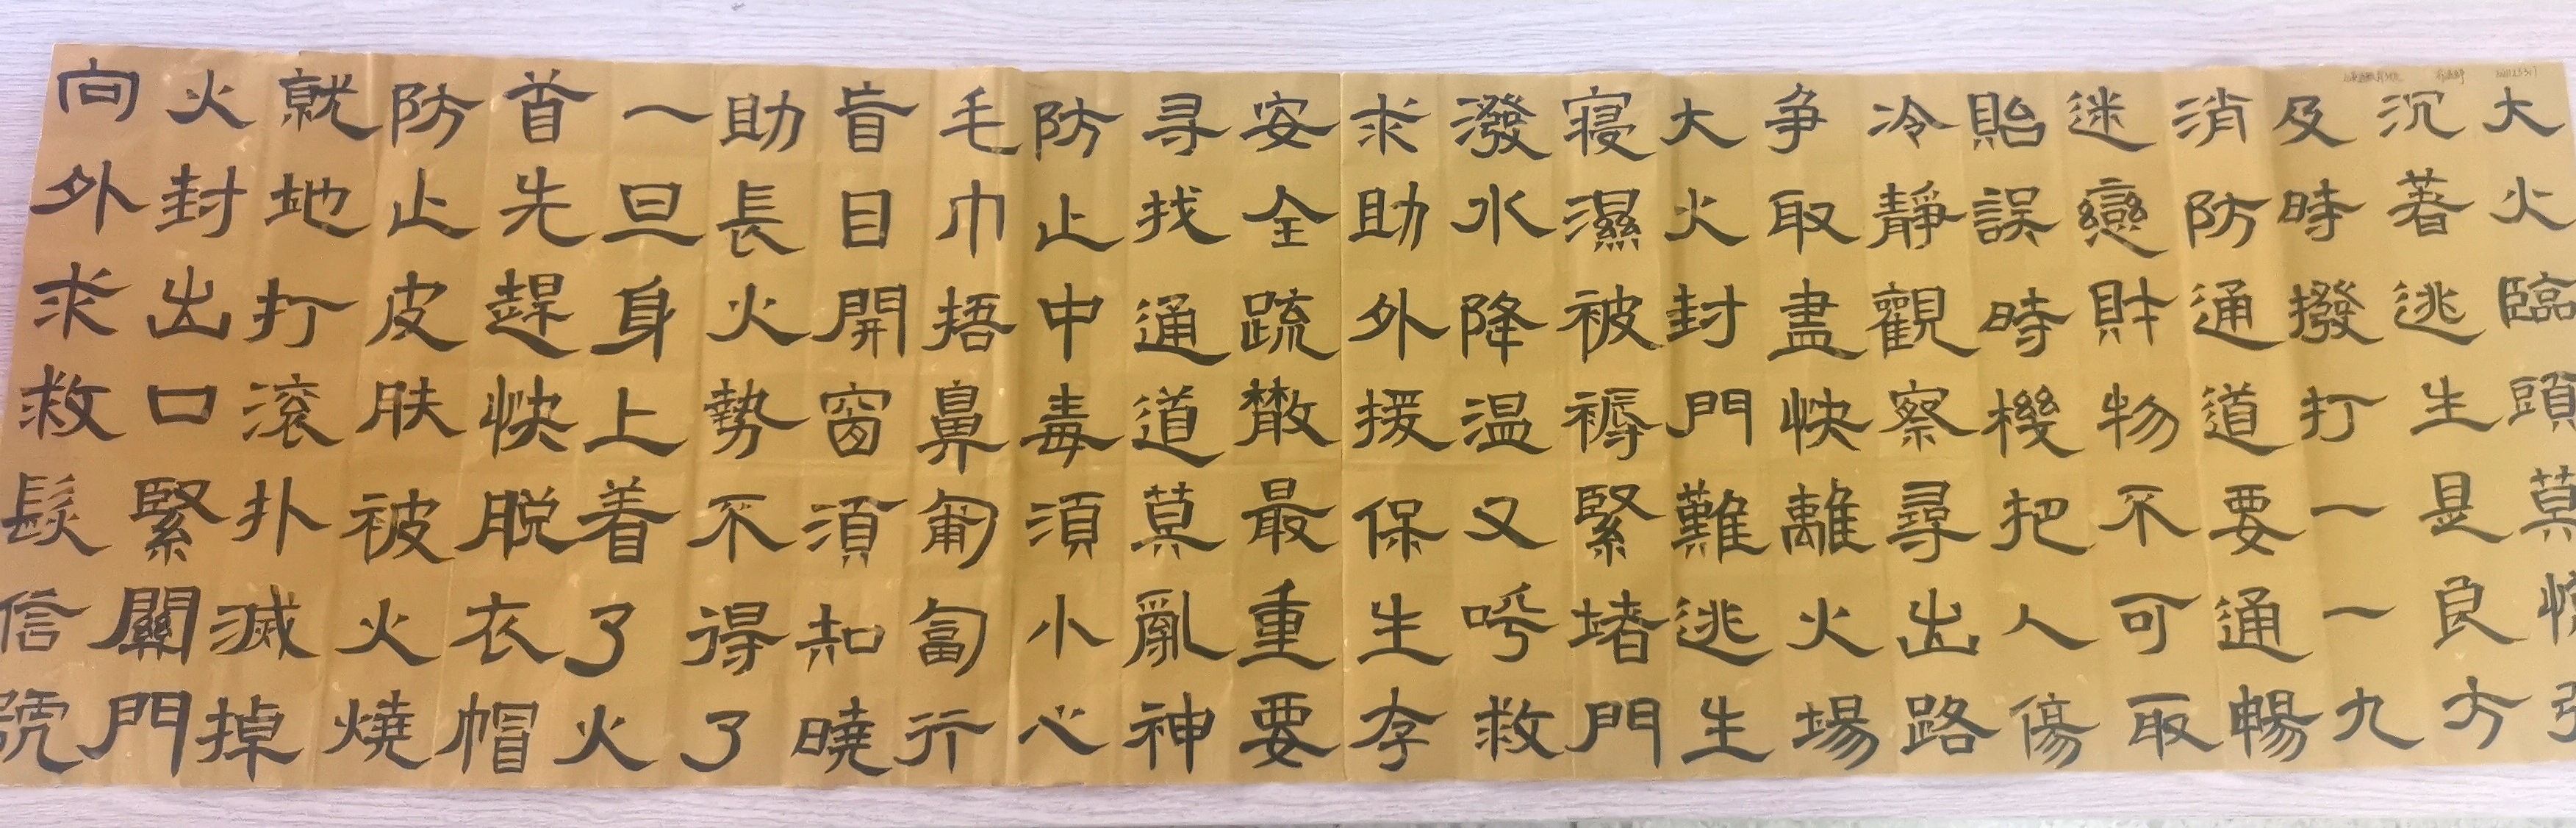 大火臨頭莫慌張
沉著逃生是良方
及時撥打一一九
消防通道要通暢
迷戀財物不可取
貽誤時機把人傷
冷靜觀察尋出路
争取盡快離火場
大火封門難逃生
寝濕被褥緊堵門
潑水降温又呼救
求助外援保生存
安全疏散最重要
寻找通道莫亂神
防止中毒須小心
毛巾捂鼻匍匐行
盲目開窗須知曉
助長火勢不得了
一旦身上着火了
首先趕快脱衣帽
防止皮肤被火燒
就地打滚扑滅掉
火封出口緊關門
向外求救髮信號